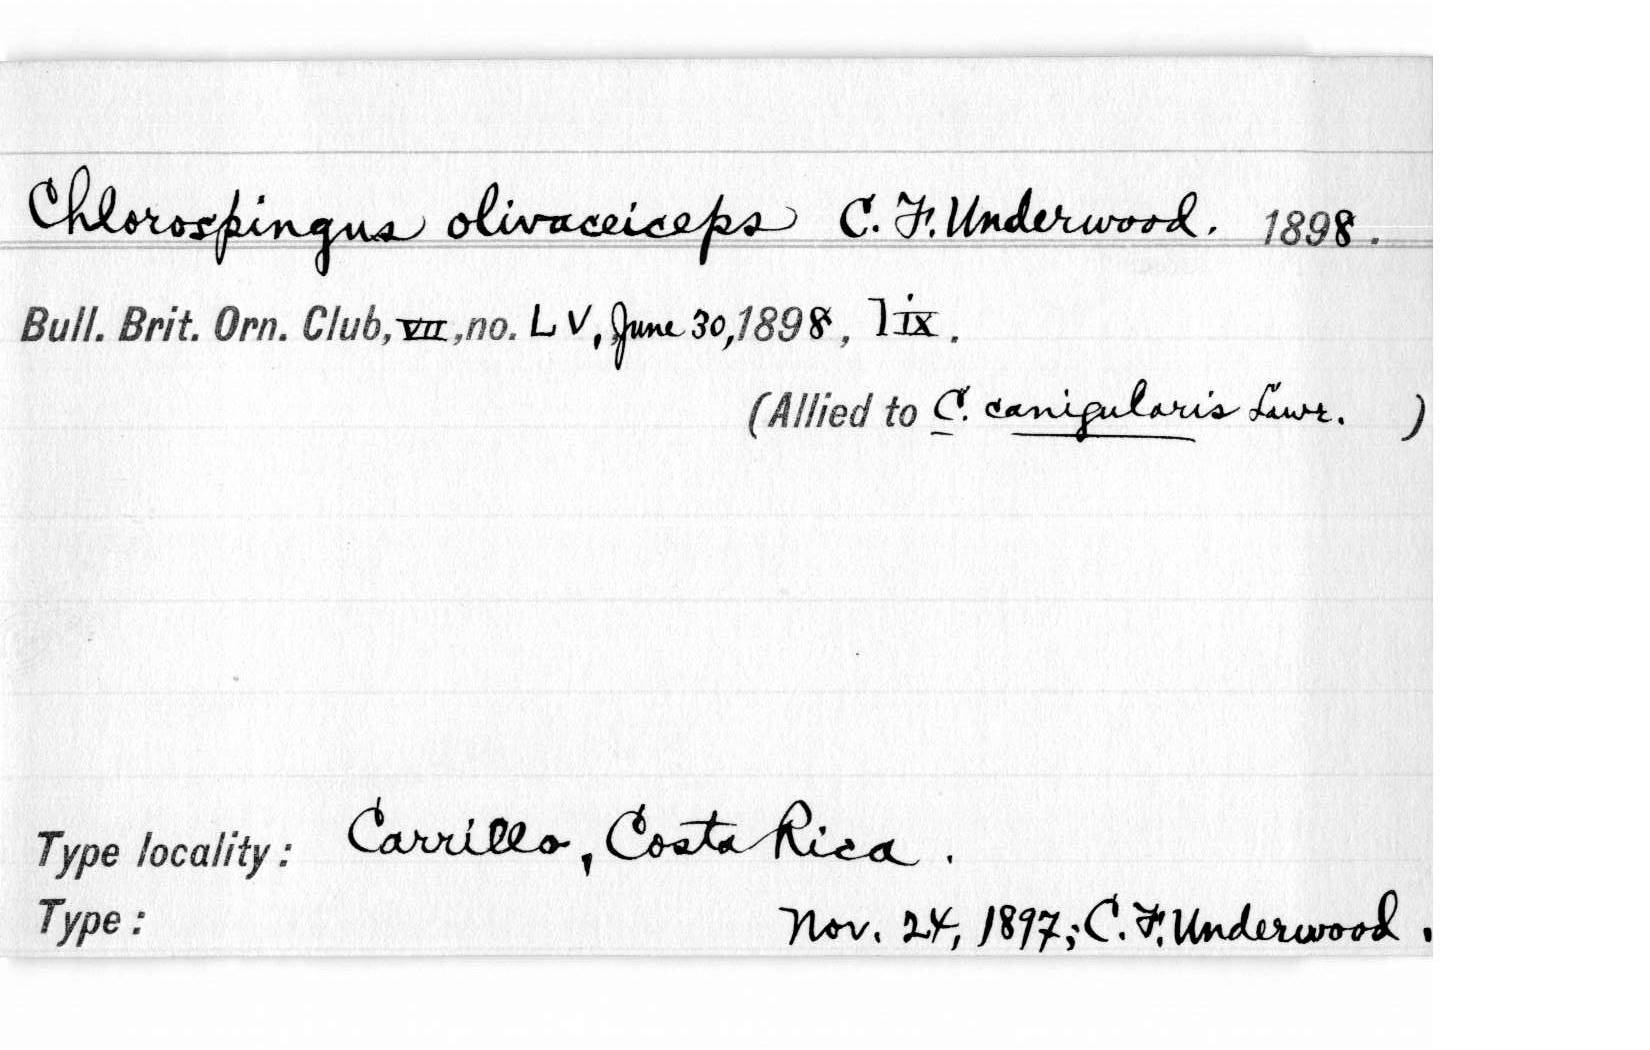 Chlorospingus olivaceiceps C. F. Underwood. 1898.
Bull. Brit. Orn. Club, VII, no. LV, June 30, 1898, lix.
(Allied to C. canigularis Lawr. )
Type locality: Carrillo, Costa Rica.
Type: Nov. 24, 1897; C. F. Underwood.